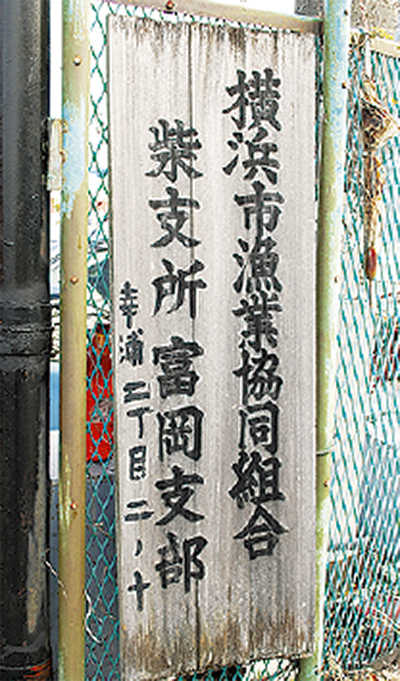 横浜市漁業協同組合
柴支所富岡支部
幸浦二丁目二ノ十